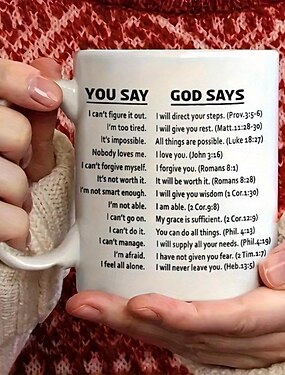 YOU SAY GOD SAYS
I can't figure it out. I will direct your steps. (Prov.3:5-6)
I'm too tired. I will give you rest. (Matt.11:28-30)
It's impossible. All things are possible. (Luke 18:27)
Nobody loves me. I love you. (John 3:16)
I can't forgive myself. I forgive you. (Romans 8:1)
It's not worth it. It will be worth it. (Romans 8:28)
I'm not smart enough. I will give you wisdom (1 Cor.1:30)
I'm not able. I am able. (2 Cor.9:8)
I can't go on. My grace is sufficient. (2 Cor.12:9)
I can't do it. You can do all things. (Phil. 4:13)
I can't manage. I will supply all your needs. (Phil.4:19)
I'm afraid. I have not given you fear. (2 Tim.1:7)
I feel all alone. I will never leave you. (Heb.13:5)